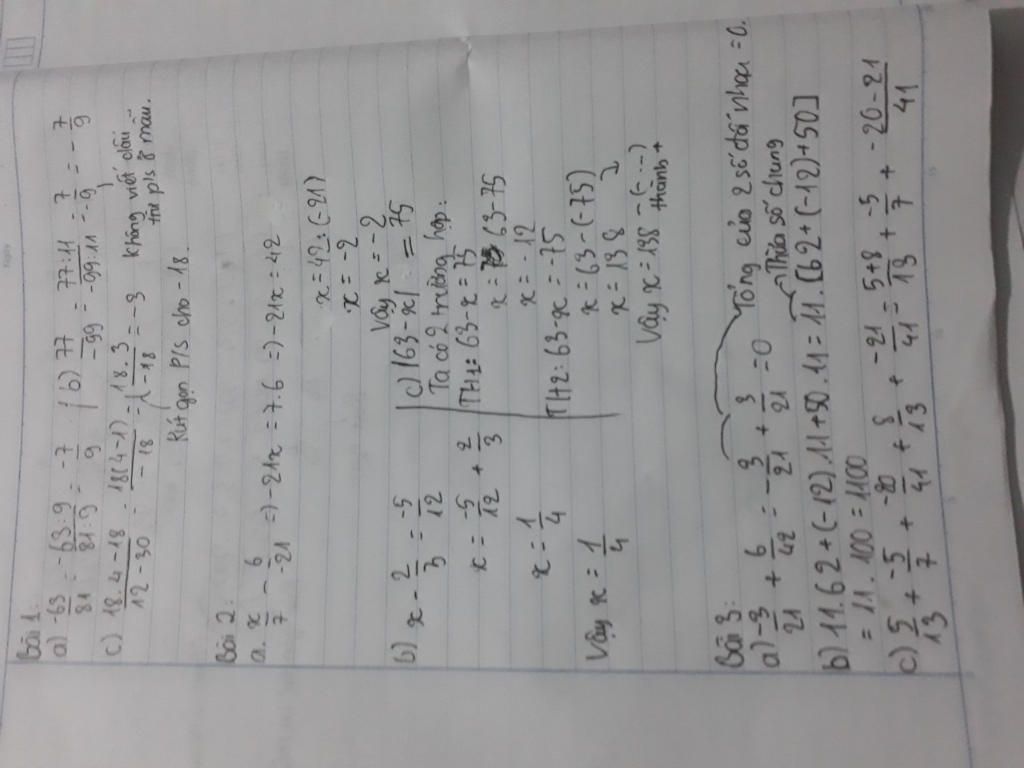 Bài 1:
a) -63/81 = -63:9/81:9 = -7/9 / b) 77/-99 = 77:11/-99:11 = 7/-9 = -7/9
c) 18.4-18/12-30 = 18(4-1)/-18 = 18.3/-18 = -3 không viết dấu - từ p/s ở mẫu.
Rút gọn P/s cho -18.
Bài 2:
a. x/7 - 6/-21 => -21x = 7.6 => -21x = 42
x = 42:(-21)
x = -2
Vậy x = -2
b) x - 2/3 = -5/12
x = -5/12 + 2/3
x = 1/4
Vậy x = 1/4
c) |63-x| = 75
Ta có 2 trường hợp:
TH1: 63-x = 75
x = 63-75
x = -12
TH2: 63-x = -75
x = 63-(-75)
x = 138
Vậy x = 138 -(-...) thành +
Bài 3:
a) -3/21 + 6/42 = -3/21 + 3/21 = 0 Tổng của 2 số đối nhau = 0.
b) 11.62+(-12).11+50.11 = 11.[62+(-12)+50] Thừa số chung
= 11.100 = 1100
c) 5/13 + -5/7 + -20/41 + 8/13 + -21/41 = 5+8/13 + -5/7 + -20-21/41